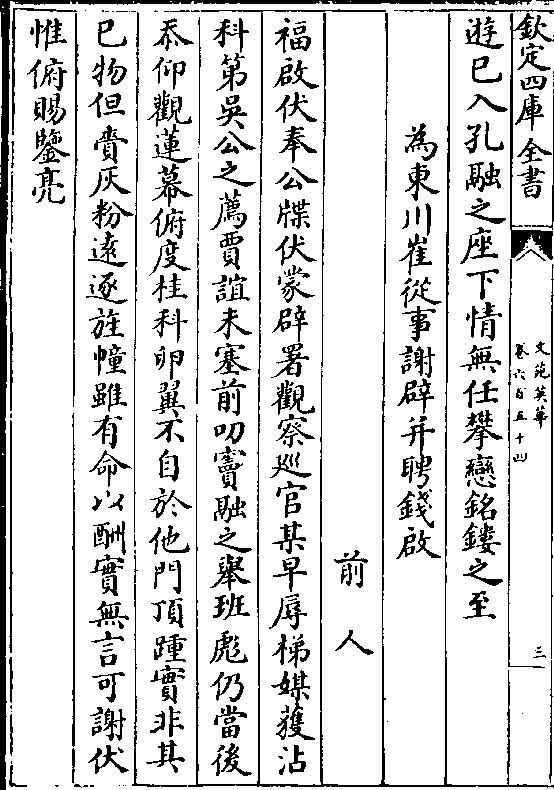 欽定四庫全書
文苑英華
卷六百五十四
三
遊已入孔融之座下情無任攀戀銘鏤之至
為東川崔從事謝辟并聘錢啟
前人
福啟伏奉公牒伏蒙辟署觀察巡官某早辱梯媒獲沾
科第吳公之薦賈誼未塞前叨竇融之舉班彪仍當後
忝仰觀蓮幕俯度桂科卵翼不自於他門頂踵實非其
已物但賷灰粉遠逐旌幢雖有命以酬實無言可謝伏
惟俯賜鑒亮